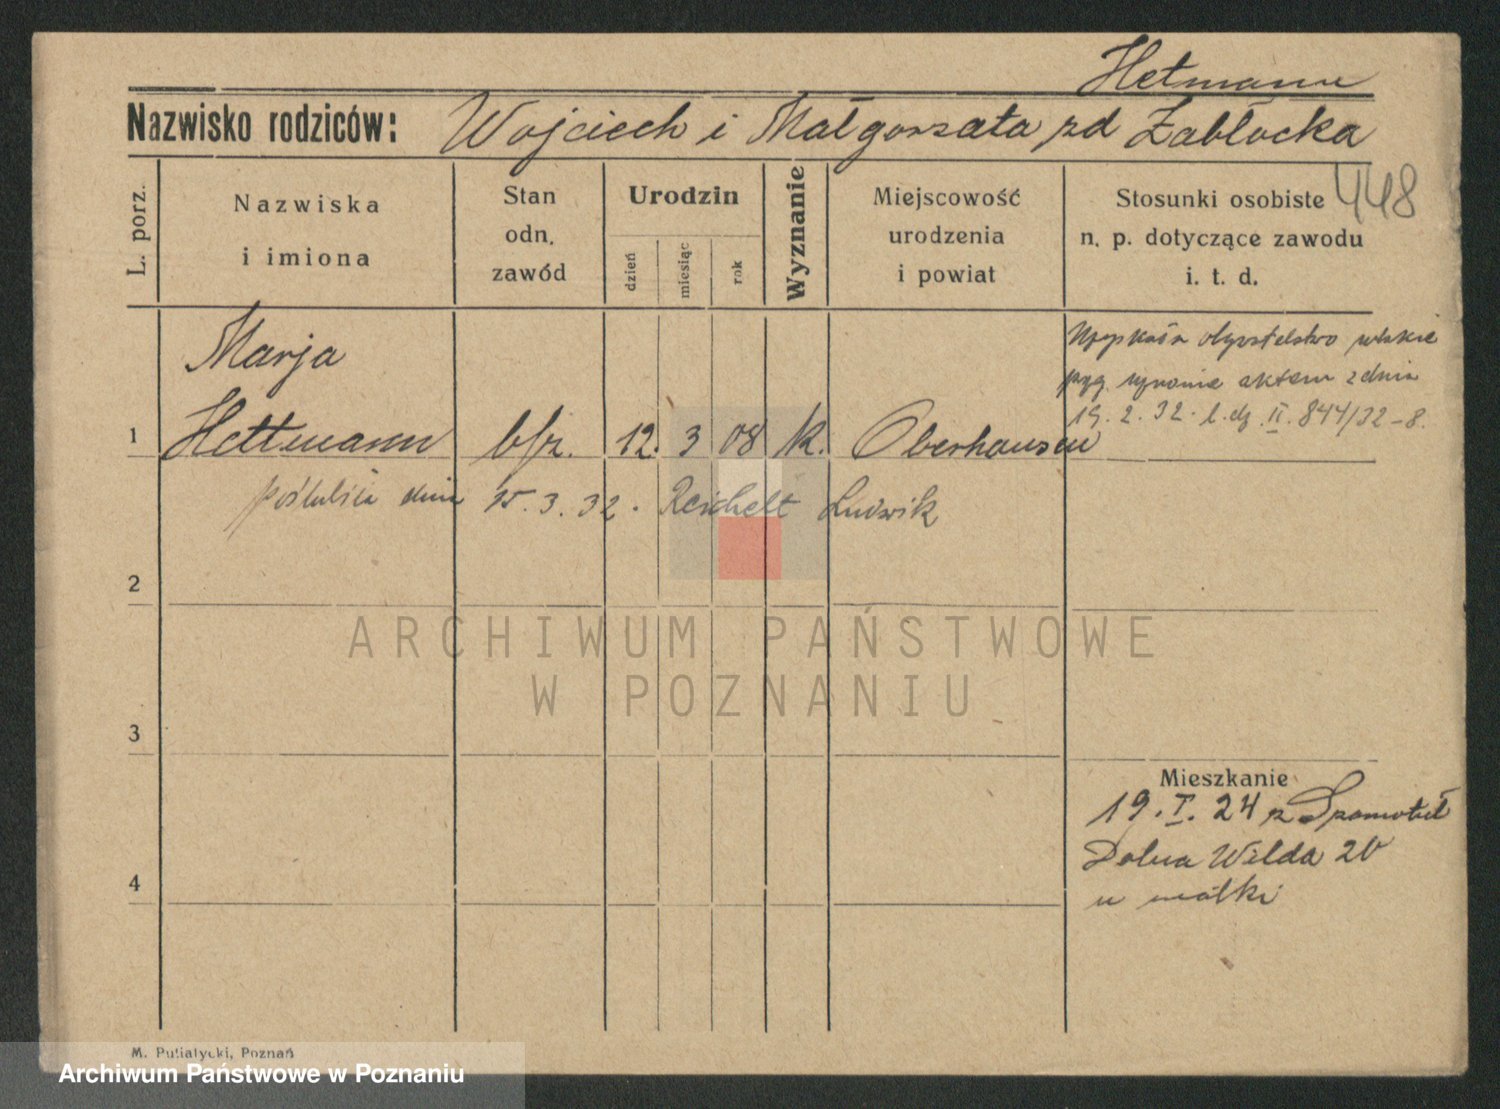 Hetmann
Nazwisko rodziców: Wojciech i Małgorzata zd Zabłocka
448
L. porz.
Nazwiska
i imiona
Stan
odn.
zawód
Urodzin
dzień
miesiąc
rok
Wyznanie
Miejscowość
urodzenia
i powiat
Stosunki osobiste
n. p. dotyczące zawodu
i. t. d.
Marja
1 Hettmann bfz. 12. 3 08 k. Oberhausen
obywatelstwo
aktem z dnia
19. 2. 32. l. dz. II. 844/32-8.
poślubiła dnia 15. 3. 32. Reichelt Ludwik
2
3
4
Mieszkanie
19. I. 24 z Szamotuł
Dolna Wilda 20
u matki
ARCHIWUM PAŃSTWOWE
W POZNANIU
M. Putiatycki, Poznań
Archiwum Państwowe w Poznaniu